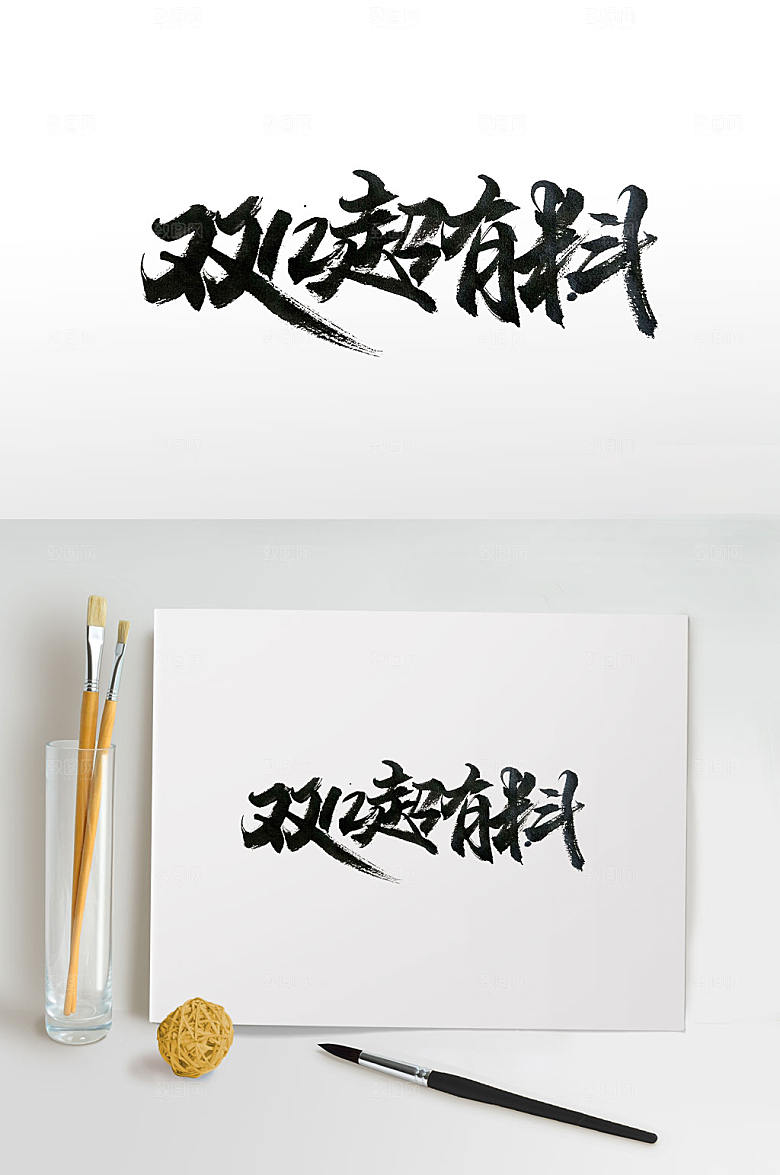 双12超有料
双12超有料